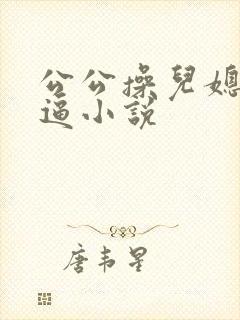 公公操兒媳
逼小說
唐韋星